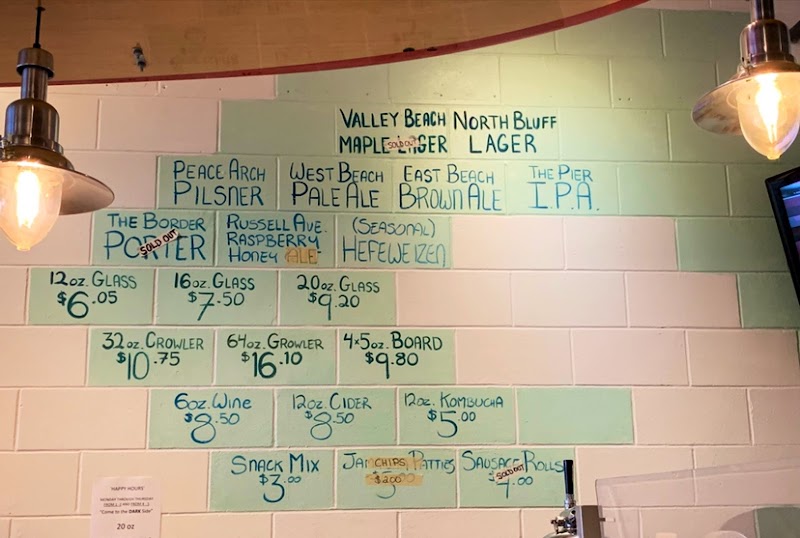 VALLEY BEACH NORTH BLUFF
MAPLE LAGER LAGER
SOLD OUT
PEACE ARCH WEST BEACH EAST BEACH THE PIER
PILSNER PALE ALE BROWN ALE I.P.A.
THE BORDER RUSSELL AVE. (SEASONAL)
PORTER RASPBERRY HEFEWEIZEN
SOLD OUT HONEY ALE
12oz. GLASS 16oz. GLASS 20oz. GLASS
$6.05 $7.50 $9.20
32oz. CROWLER 64oz. GROWLER 4x5oz. BOARD
$10.75 $16.10 $9.80
6oz. WINE 12oz. CIDER 12oz. KOMBUCHA
$8.50 $8.50 $5.00
SNACK MIX CHIPS PATTIES SAUSAGE ROLLS
$3.00 $2.00 SOLD OUT
HAPPY HOURS'
MONDAY THROUGH THURSDAY
"Come to the DARK Side"
20 oz